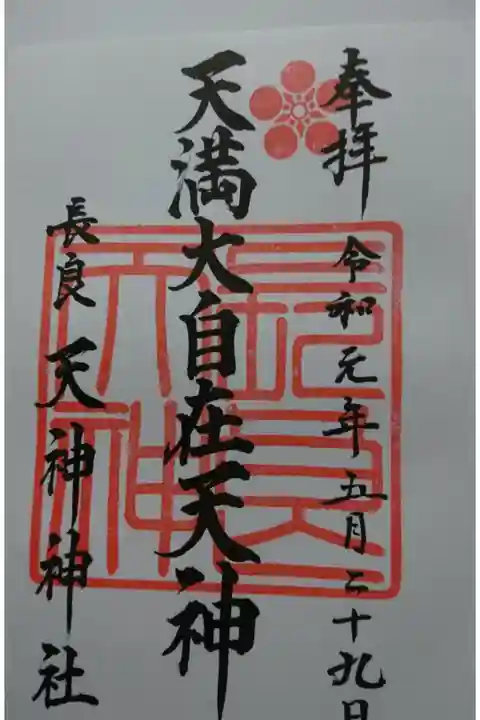 奉拝 令和元年五月二十九日
天満大自在天神
長良天神神社
長良天神